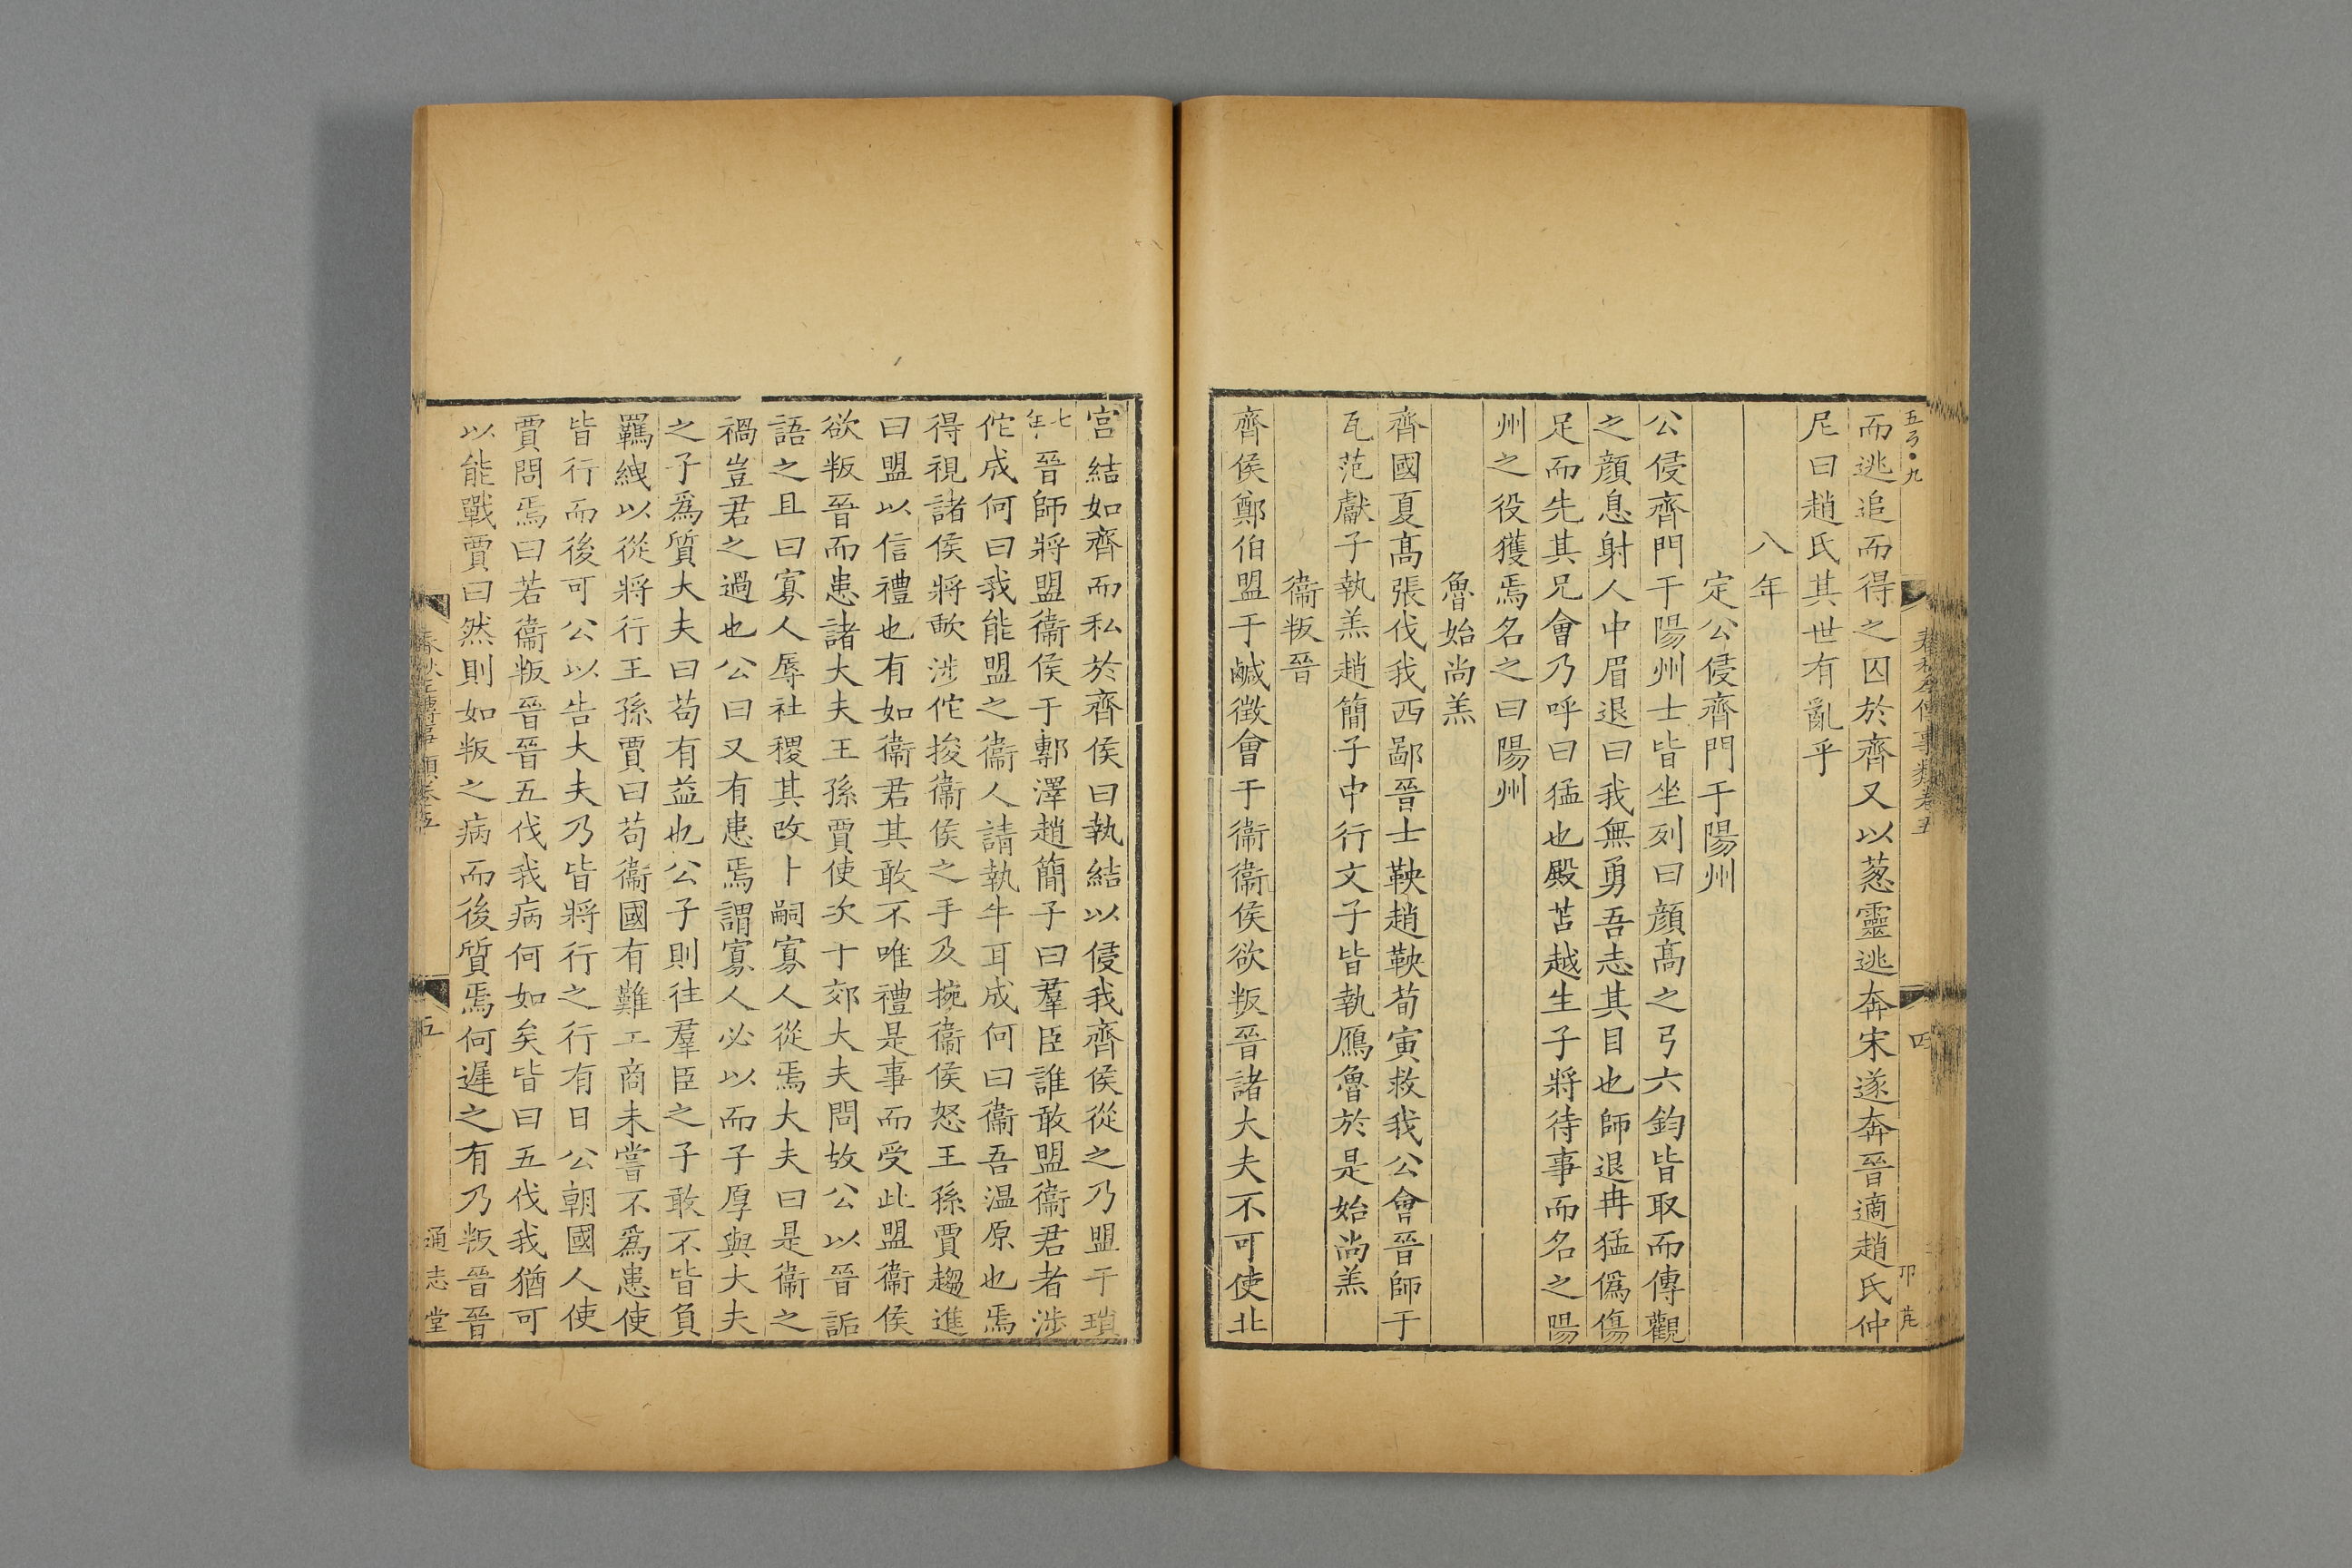 而逃追而得之囚於齊又以葱靈逃奔宋遂奔晉適趙氏仲
尼曰趙氏其世有亂乎
八年
定公侵齊門于陽州
公侵齊門于陽州士皆坐列曰顏髙之弓六鈞皆取而傳觀
之顏息射人中眉退曰我無勇吾志其目也師退冉猛僞傷
足而先其兄會乃呼曰猛也殿苫越生子將待事而名之陽
州之役獲焉名之曰陽州
魯始尚羔
齊國夏髙張伐我西鄙晉士鞅趙鞅荀寅救我公會晉師于
瓦范獻子執羔趙簡子中行文子皆執鴈魯於是始尚羔
衞叛晉
齊侯鄭伯盟于鹹徵會于衞衞侯欲叛晉諸大夫不可使北
宫結如齊而私於齊侯曰執結以侵我齊侯從之乃盟于瑣
七年晉師將盟衞侯于鄟澤趙簡子曰羣臣誰敢盟衞君者涉
佗成何曰我能盟之衞人請執牛耳成何曰衞吾温原也焉
得視諸侯將歃涉佗捘衞侯之手及捥衞侯怒王孫賈趨進
曰盟以信禮也有如衞君其敢不唯禮是事而受此盟衞侯
欲叛晉而患諸大夫王孫賈使次于郊大夫問故公以晉詬
語之且曰寡人辱社稷其改卜嗣寡人從焉大夫曰是衞之
禍豈君之過也公曰又有患焉謂寡人必以而子厚與大夫
之子爲質大夫曰茍有益也公子則往羣臣之子敢不皆負
羈絏以從將行王孫賈曰茍衞國有難工商未嘗不爲患使
皆行而後可公以告大夫乃皆將行之行有日公朝國人使
賈問焉曰若衞叛晉晉五伐我病何如矣皆曰五伐我猶可
以能戰賈曰然則如叛之病而後質焉何遲之有乃叛晉晉
五
通志堂